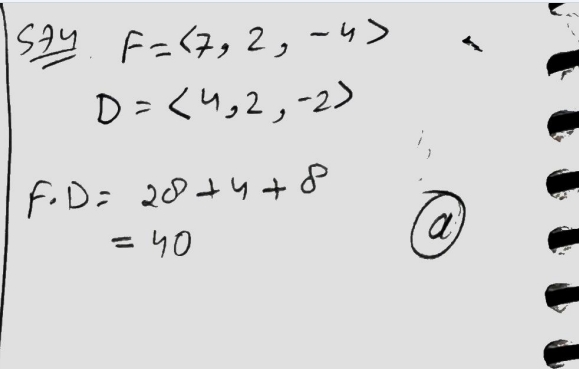 574 F=<7, 2, -4>
D = <4, 2, -2>
F.D= 28+4+8
= 40
a